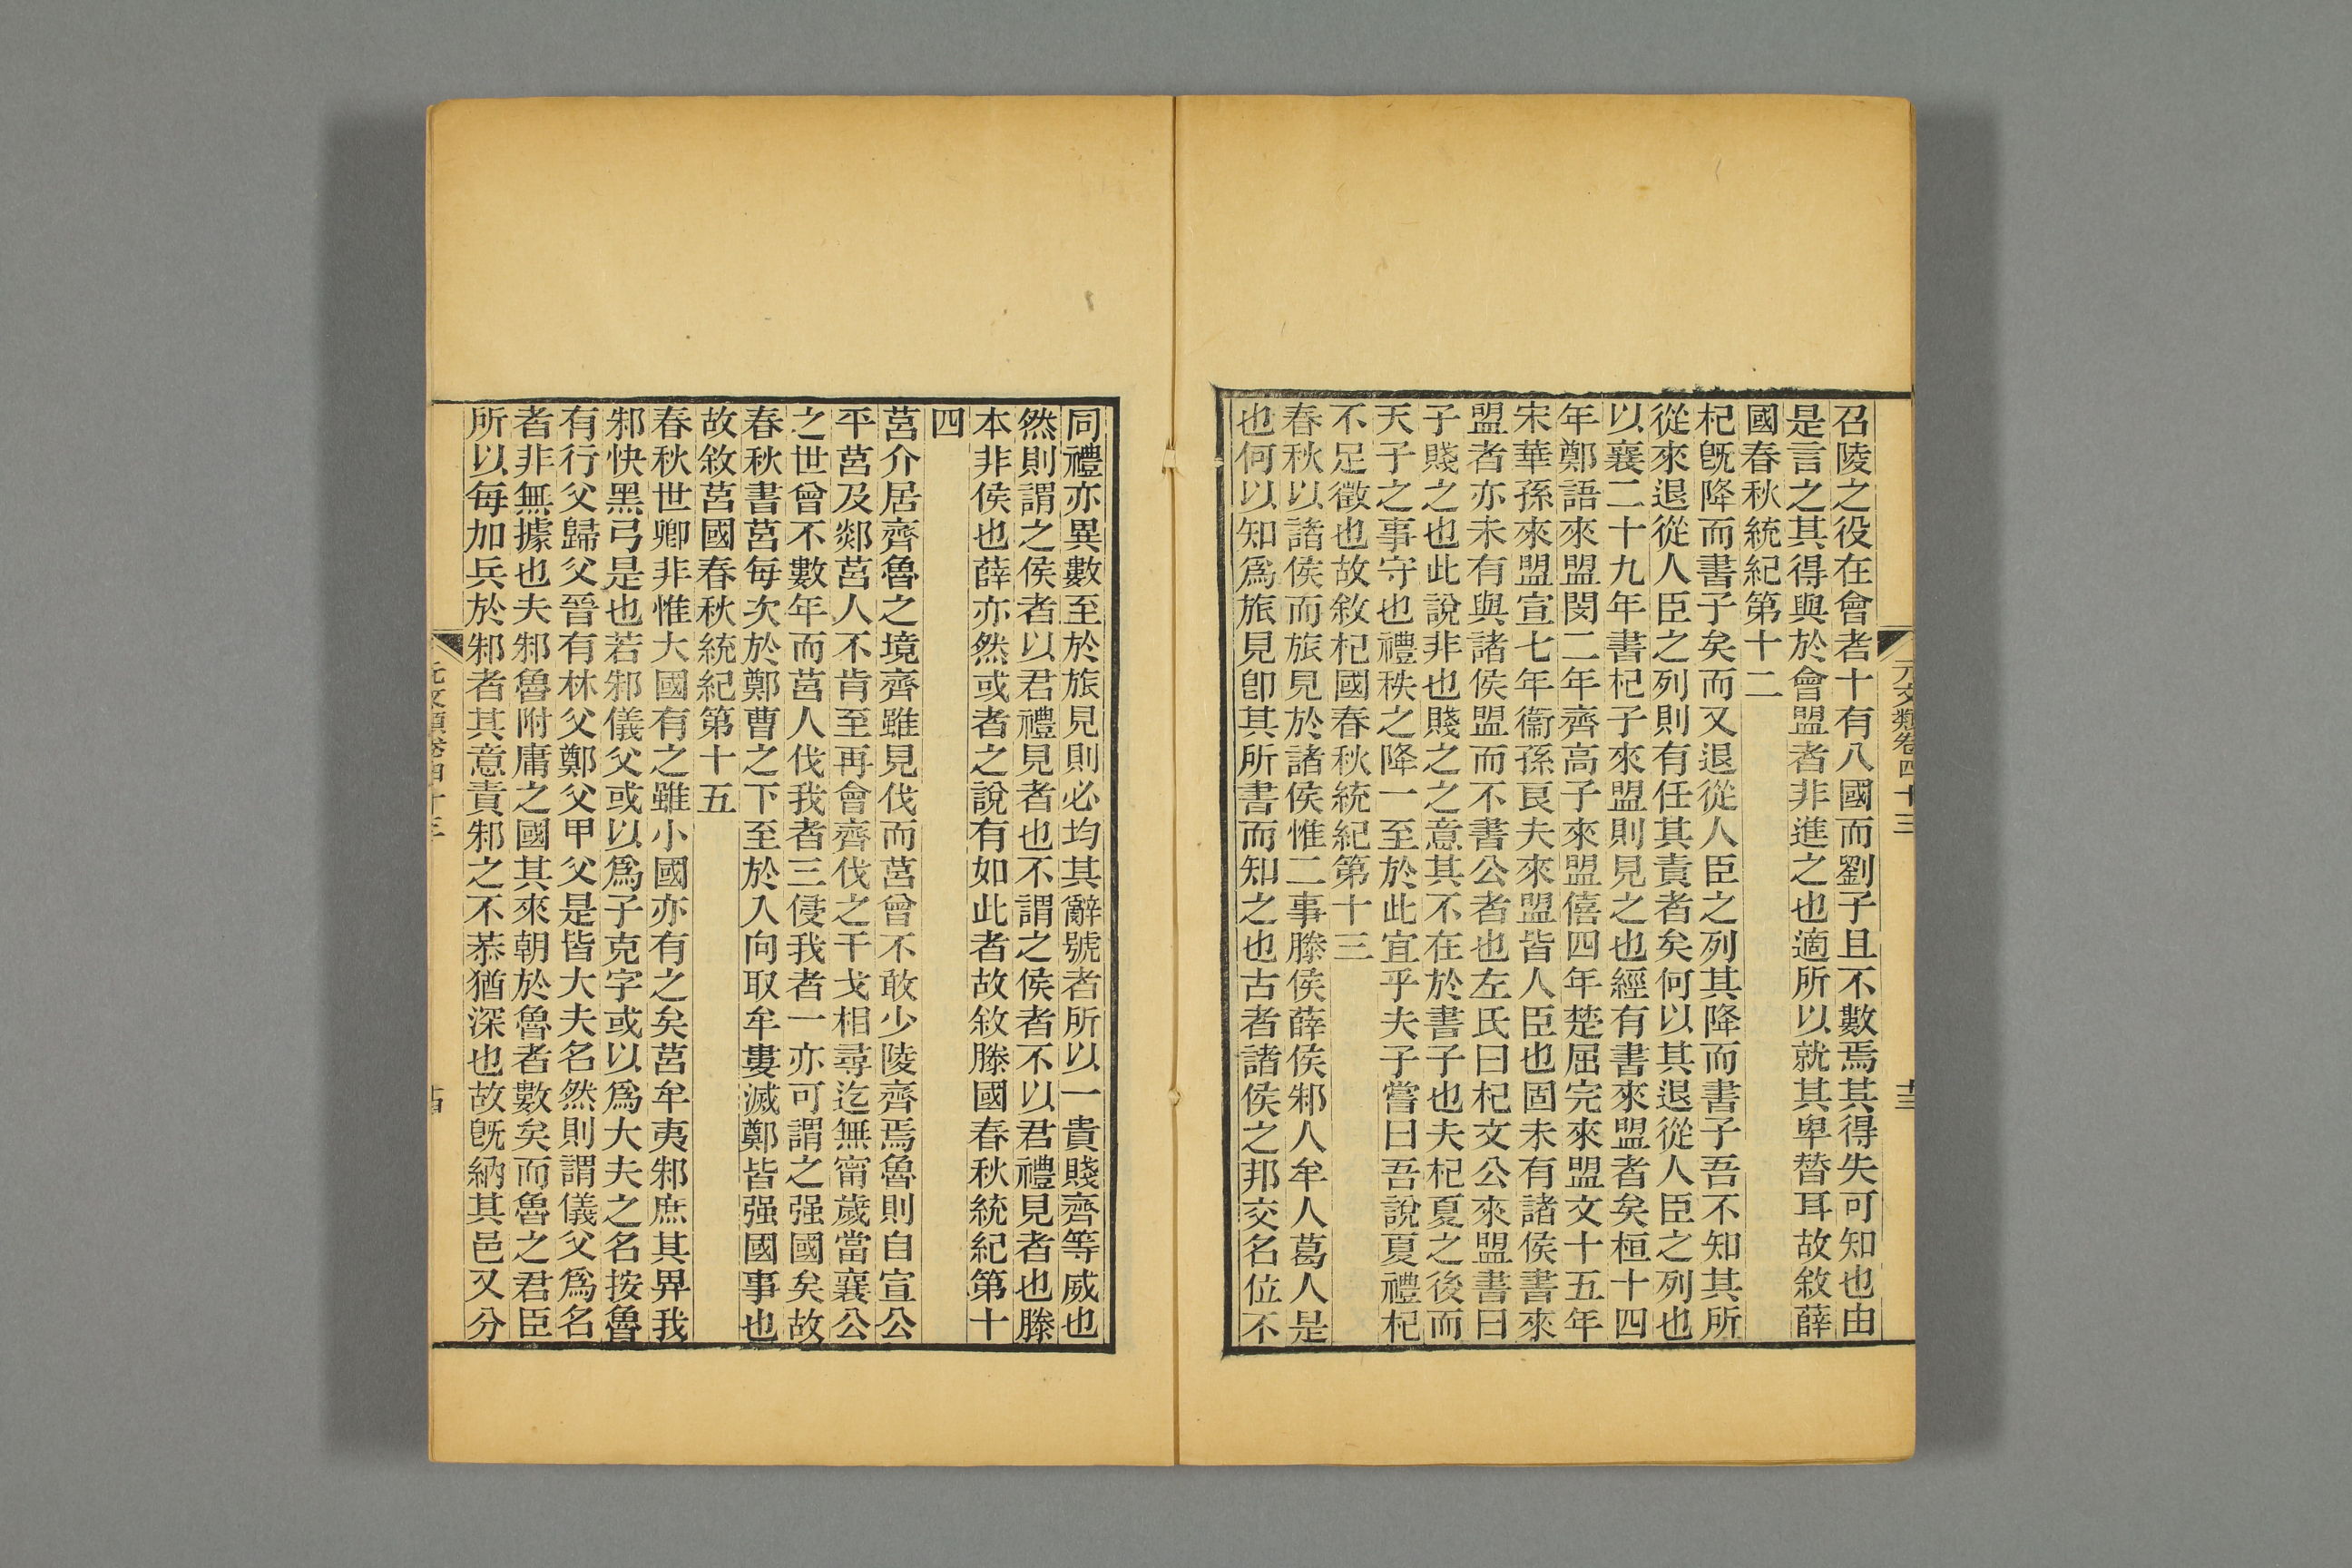 元文類卷四十三
十三
召陵之役在會者十有八國而劉子且不數焉其得失可知也由
是言之其得與於會盟者非進之也適所以就其卑替耳故敘薛
國春秋統紀第十二
杞旣降而書子矣而又退從人臣之列其降而書子吾不知其所
從來退從人臣之列則有任其責者矣何以其退從人臣之列也
以襄二十九年書杞子來盟則見之也經有書來盟者矣桓十四
年鄭語來盟閔二年齊高子來盟僖四年楚屈完來盟文十五年
宋華孫來盟宣七年衞孫良夫來盟皆人臣也固未有諸侯書來
盟者亦未有與諸侯盟而不書公者也左氏曰杞文公來盟書曰
子賤之也此說非也賤之之意其不在於書子也夫杞夏之後而
天子之事守也禮秩之降一至於此宜乎夫子嘗曰吾說夏禮杞
不足徵也故敘杞國春秋統紀第十三
春秋以諸侯而旅見於諸侯惟二事滕侯薛侯邾人牟人葛人是
也何以知爲旅見卽其所書而知之也古者諸侯之邦交名位不
同禮亦異數至於旅見則必均其辭號者所以一貴賤齊等威也
然則謂之侯者以君禮見者也不謂之侯者不以君禮見者也滕
本非侯也薛亦然或者之說有如此者故敘滕國春秋統紀第十
四
莒介居齊魯之境齊雖見伐而莒曾不敢少陵齊焉魯則自宣公
平莒及郯莒人不肯至再會齊伐之干戈相尋迄無甯歲當襄公
之世曾不數年而莒人伐我者三侵我者一亦可謂之强國矣故
春秋書莒每次於鄭曹之下至於入向取牟婁滅鄫皆强國事也
故敘莒國春秋統紀第十五
春秋世卿非惟大國有之雖小國亦有之矣莒牟夷邾庶其畀我
邾快黑弓是也若邾儀父或以爲子克字或以爲大夫之名按魯
有行父歸父晉有林父鄭父甲父是皆大夫名然則謂儀父爲名
者非無據也夫邾魯附庸之國其來朝於魯者數矣而魯之君臣
所以每加兵於邾者其意責邾之不恭猶深也故旣納其邑又分
元文類卷四十三
十四